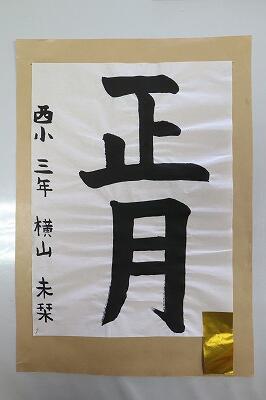 正月
西小 三年 横山 未栞